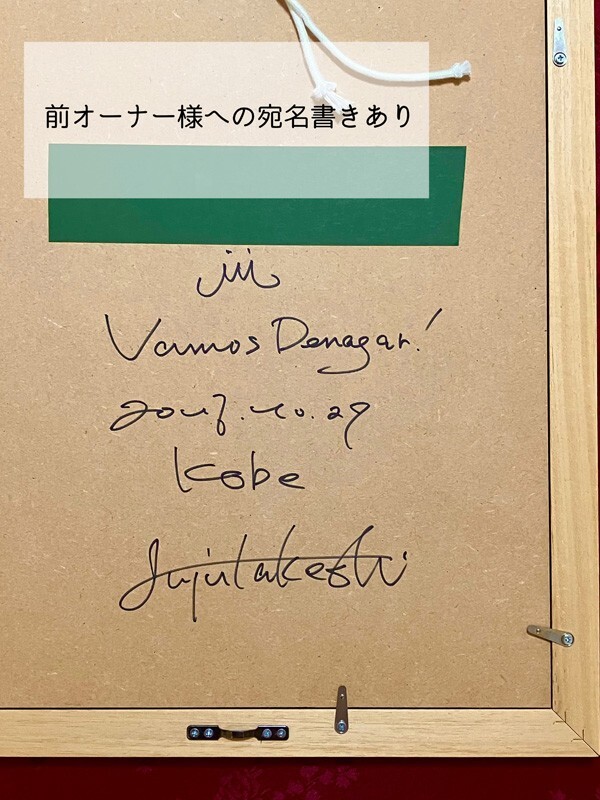 前オーナー様への宛名書きあり
Vamos Denagar!
2017.10.29
Kobe